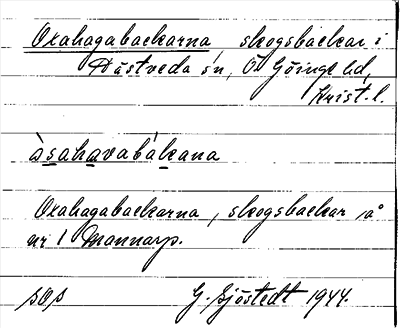 Oxahagabackarna, skogsbackar i
Hästveda sn, Ö Göinge hd,
Krist. l.
àsahavabákana
Oxahagabackarna, skogsbackar å
nr 1 Mannarp.
SOS G. Sjöstedt 1944.